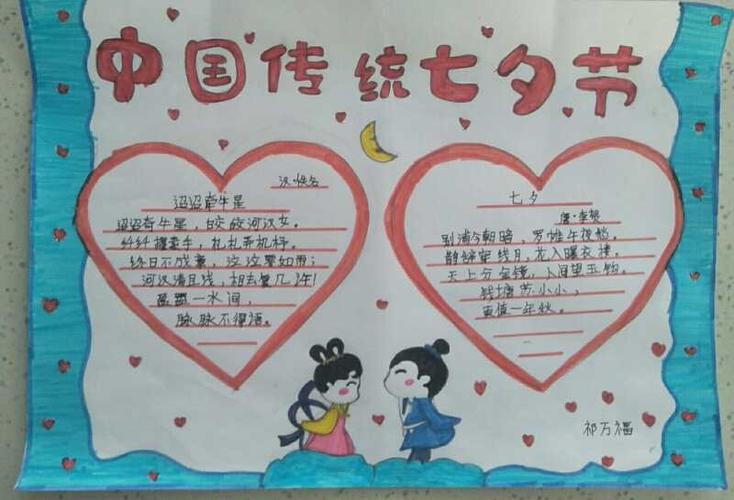 中国传统七夕节
汉·佚名
迢迢牵牛星
迢迢牵牛星，皎皎河汉女。
纤纤擢素手，札札弄机杼。
终日不成章，泣涕零如雨；
河汉清且浅，相去复几许！
盈盈一水间，
脉脉不得语。
七夕
唐·李贺
别浦今朝暗，罗帷午夜愁。
鹊辞穿线月，花入曝衣楼。
天上分金镜，人间望玉钩。
钱塘苏小小，
更值一年秋。
祁万福